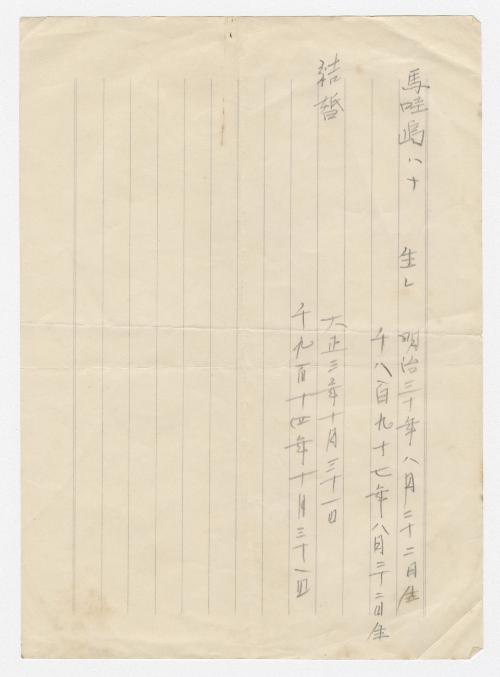 馬哇嶋ハナ 生レ 明治三十年八月二十二日生
千八百九十七年八月二十二日生
結婚 大正三年十月三十一日
千九百十四年十月三十一日